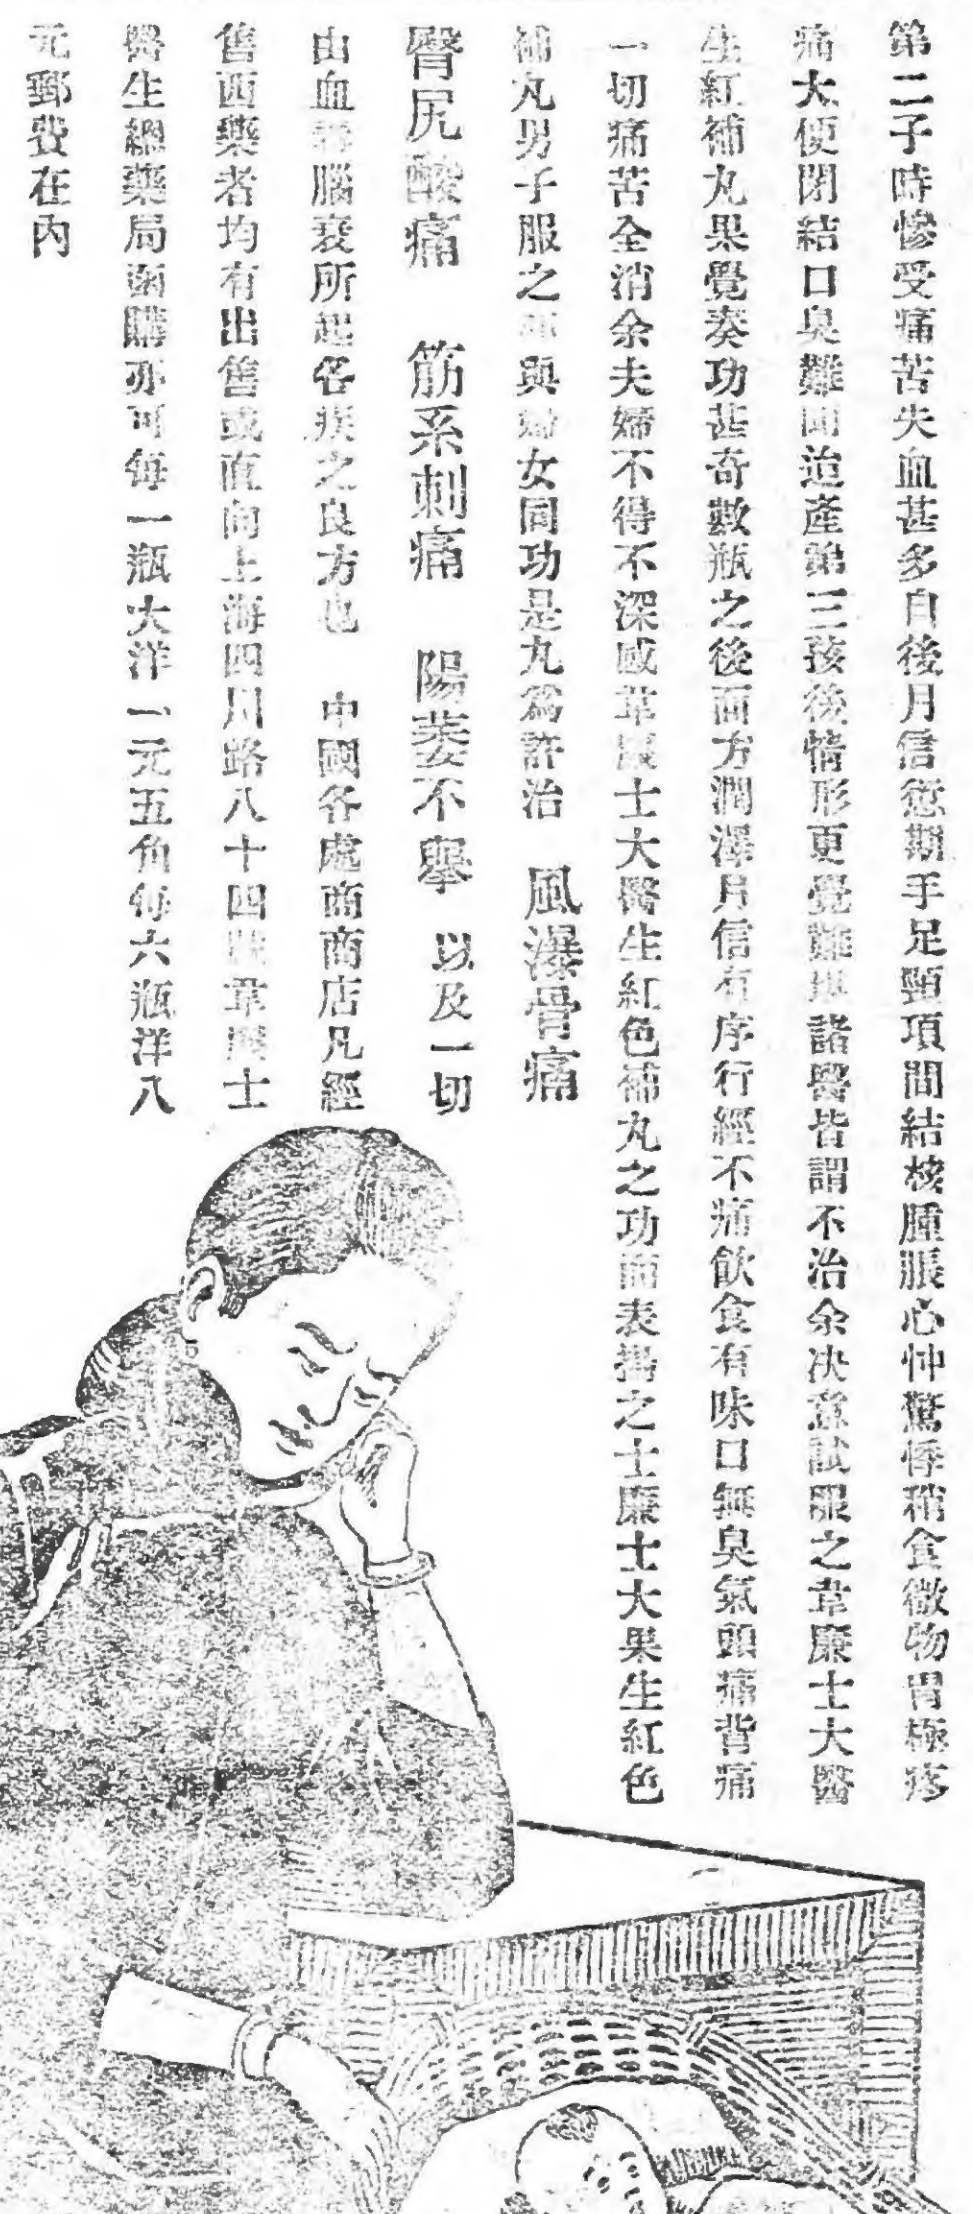 第二子時慘受痛苦失血甚多自後月信愆期手足頸項間結核腫脹心忡驚悸稍食微物胃極疼
痛大便閉結口臭難聞迨產第三孩後情形更覺難堪諸醫皆謂不治余决意試服之韋廉士大醫
生紅補丸果覺奏功甚奇數瓶之後面方潤澤月信有序行經不痛飲食有味口無臭氣頭痛背痛
一切痛苦全消余夫婦不得不深感韋廉士大醫生紅色補丸之功而表揚之士廉士大果生紅色
補丸男子服之亦與婦女同功是丸爲許治 風濕骨痛
臀尻酸痛 筋系刺痛 陽萎不舉 以及一切
由血 腦衰所起各疾之良方也 中國各處商商店凡經
售西藥者均有出售或直向上海四川路八十四號韋廉士
醫生總藥局函購亦可每一瓶大洋一元五角每六瓶洋八
元郵費在內